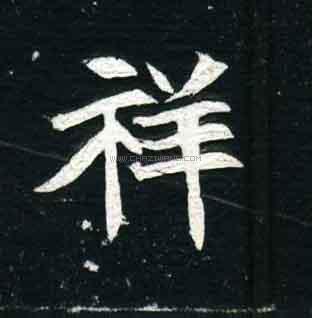 祥
WWW.CHAZIWANG.COM